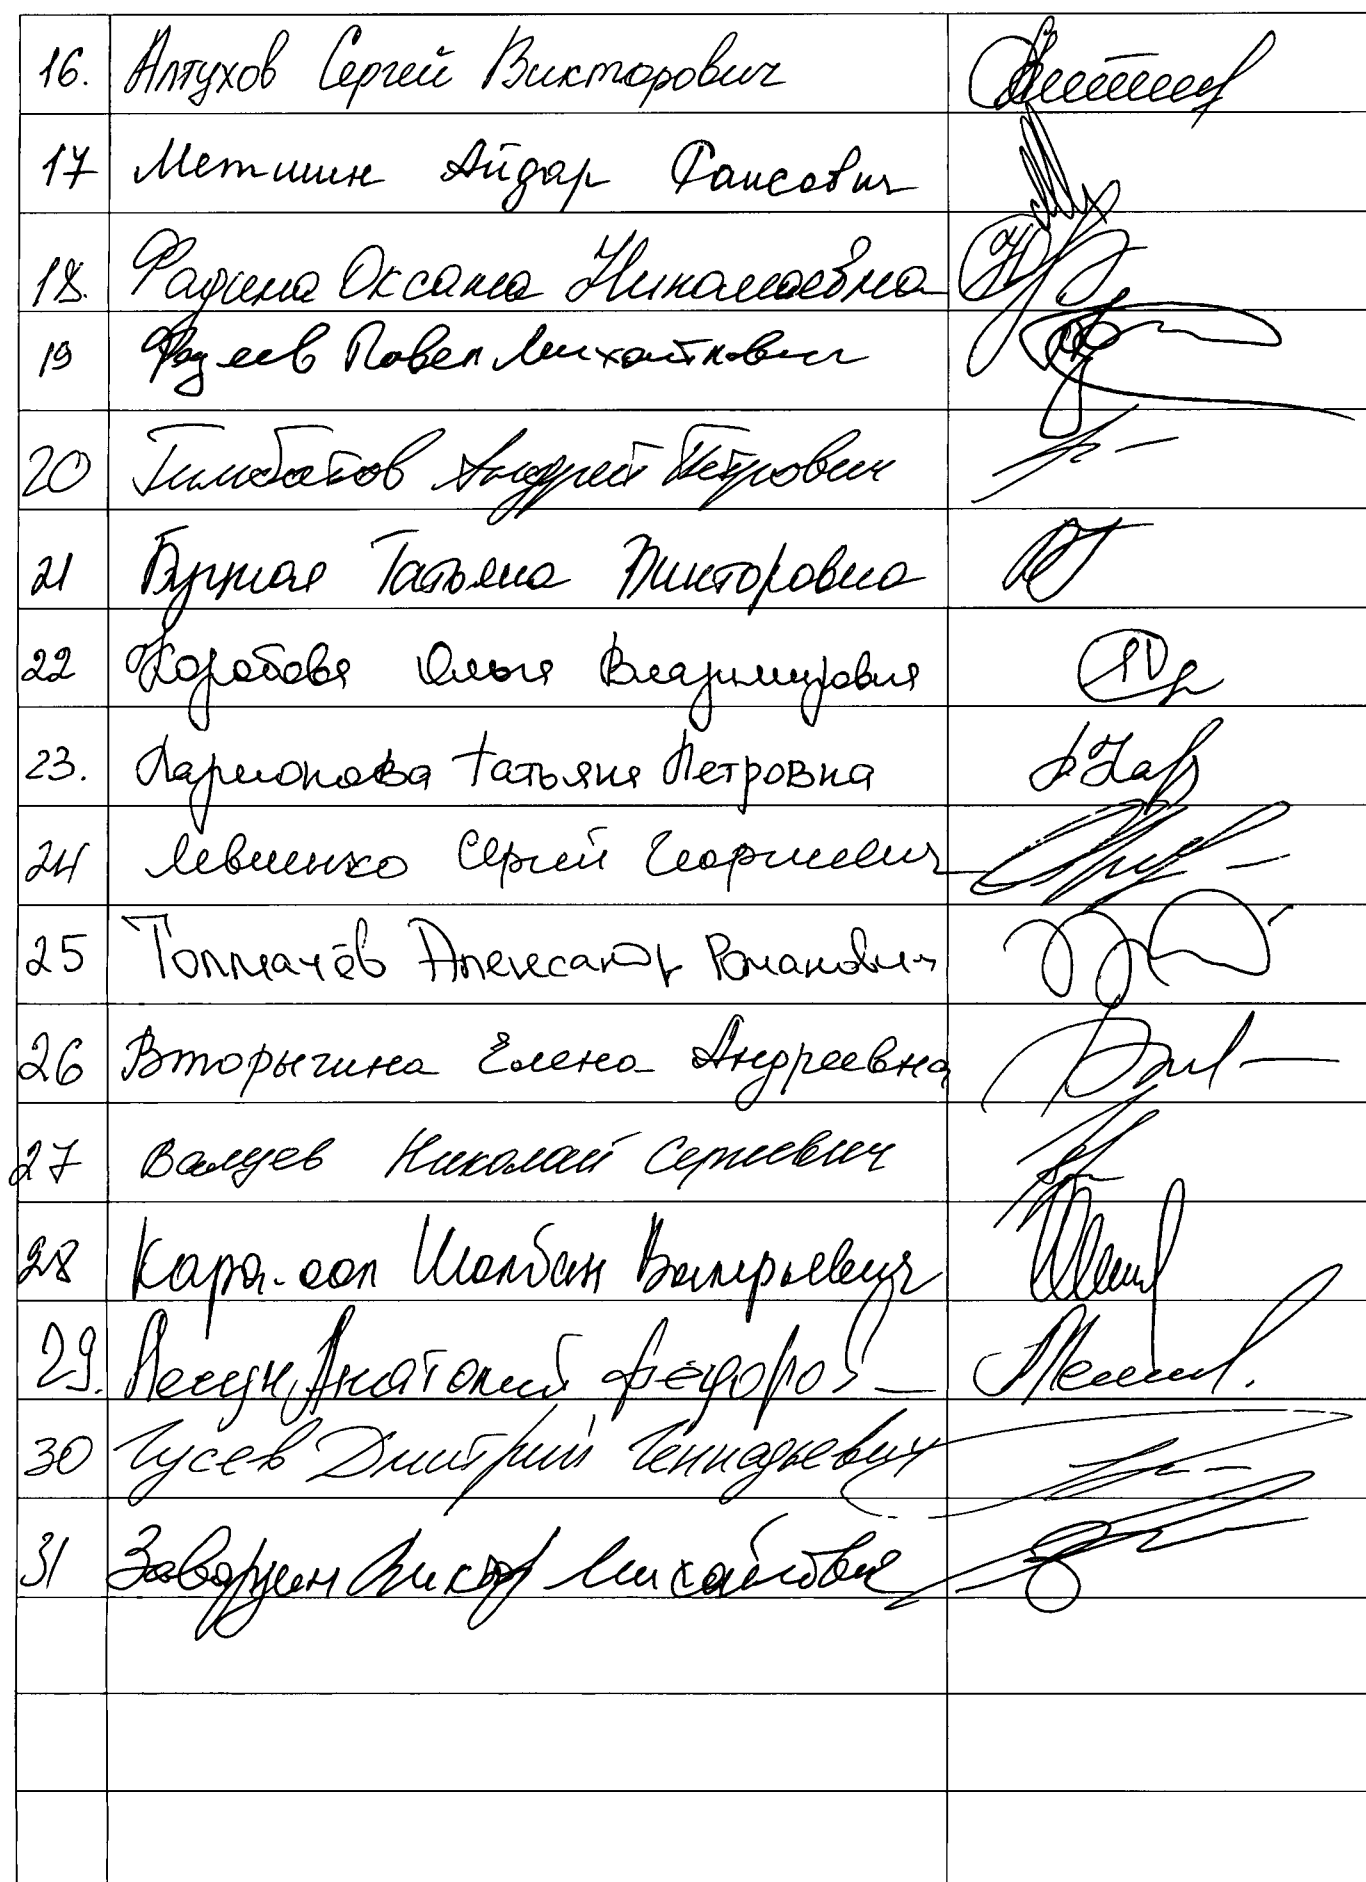 16. Алтухов Сергей Викторович
17 Метшин Айдар Раисович
18. Фадина Оксана Николаевна
19 Фадеев Павел Михайлович
20 Андрей Петрович
21 Буцкая Татьяна Викторовна
22 Коробова Ольга Владимировна
23. Ларионова Татьяна Петровна
24 Левченко Сергей Георгиевич
25 Толмачёв Александр Романович
26 Вторыгина Елена Андреевна
27 Валуев Николай Сергеевич
28 Кара-оол Шолбан Валерьевич
29. Лесун Анатолий Федоров
30 Гусев Дмитрий Геннадьевич
31 Заварзин Виктор Михайлович